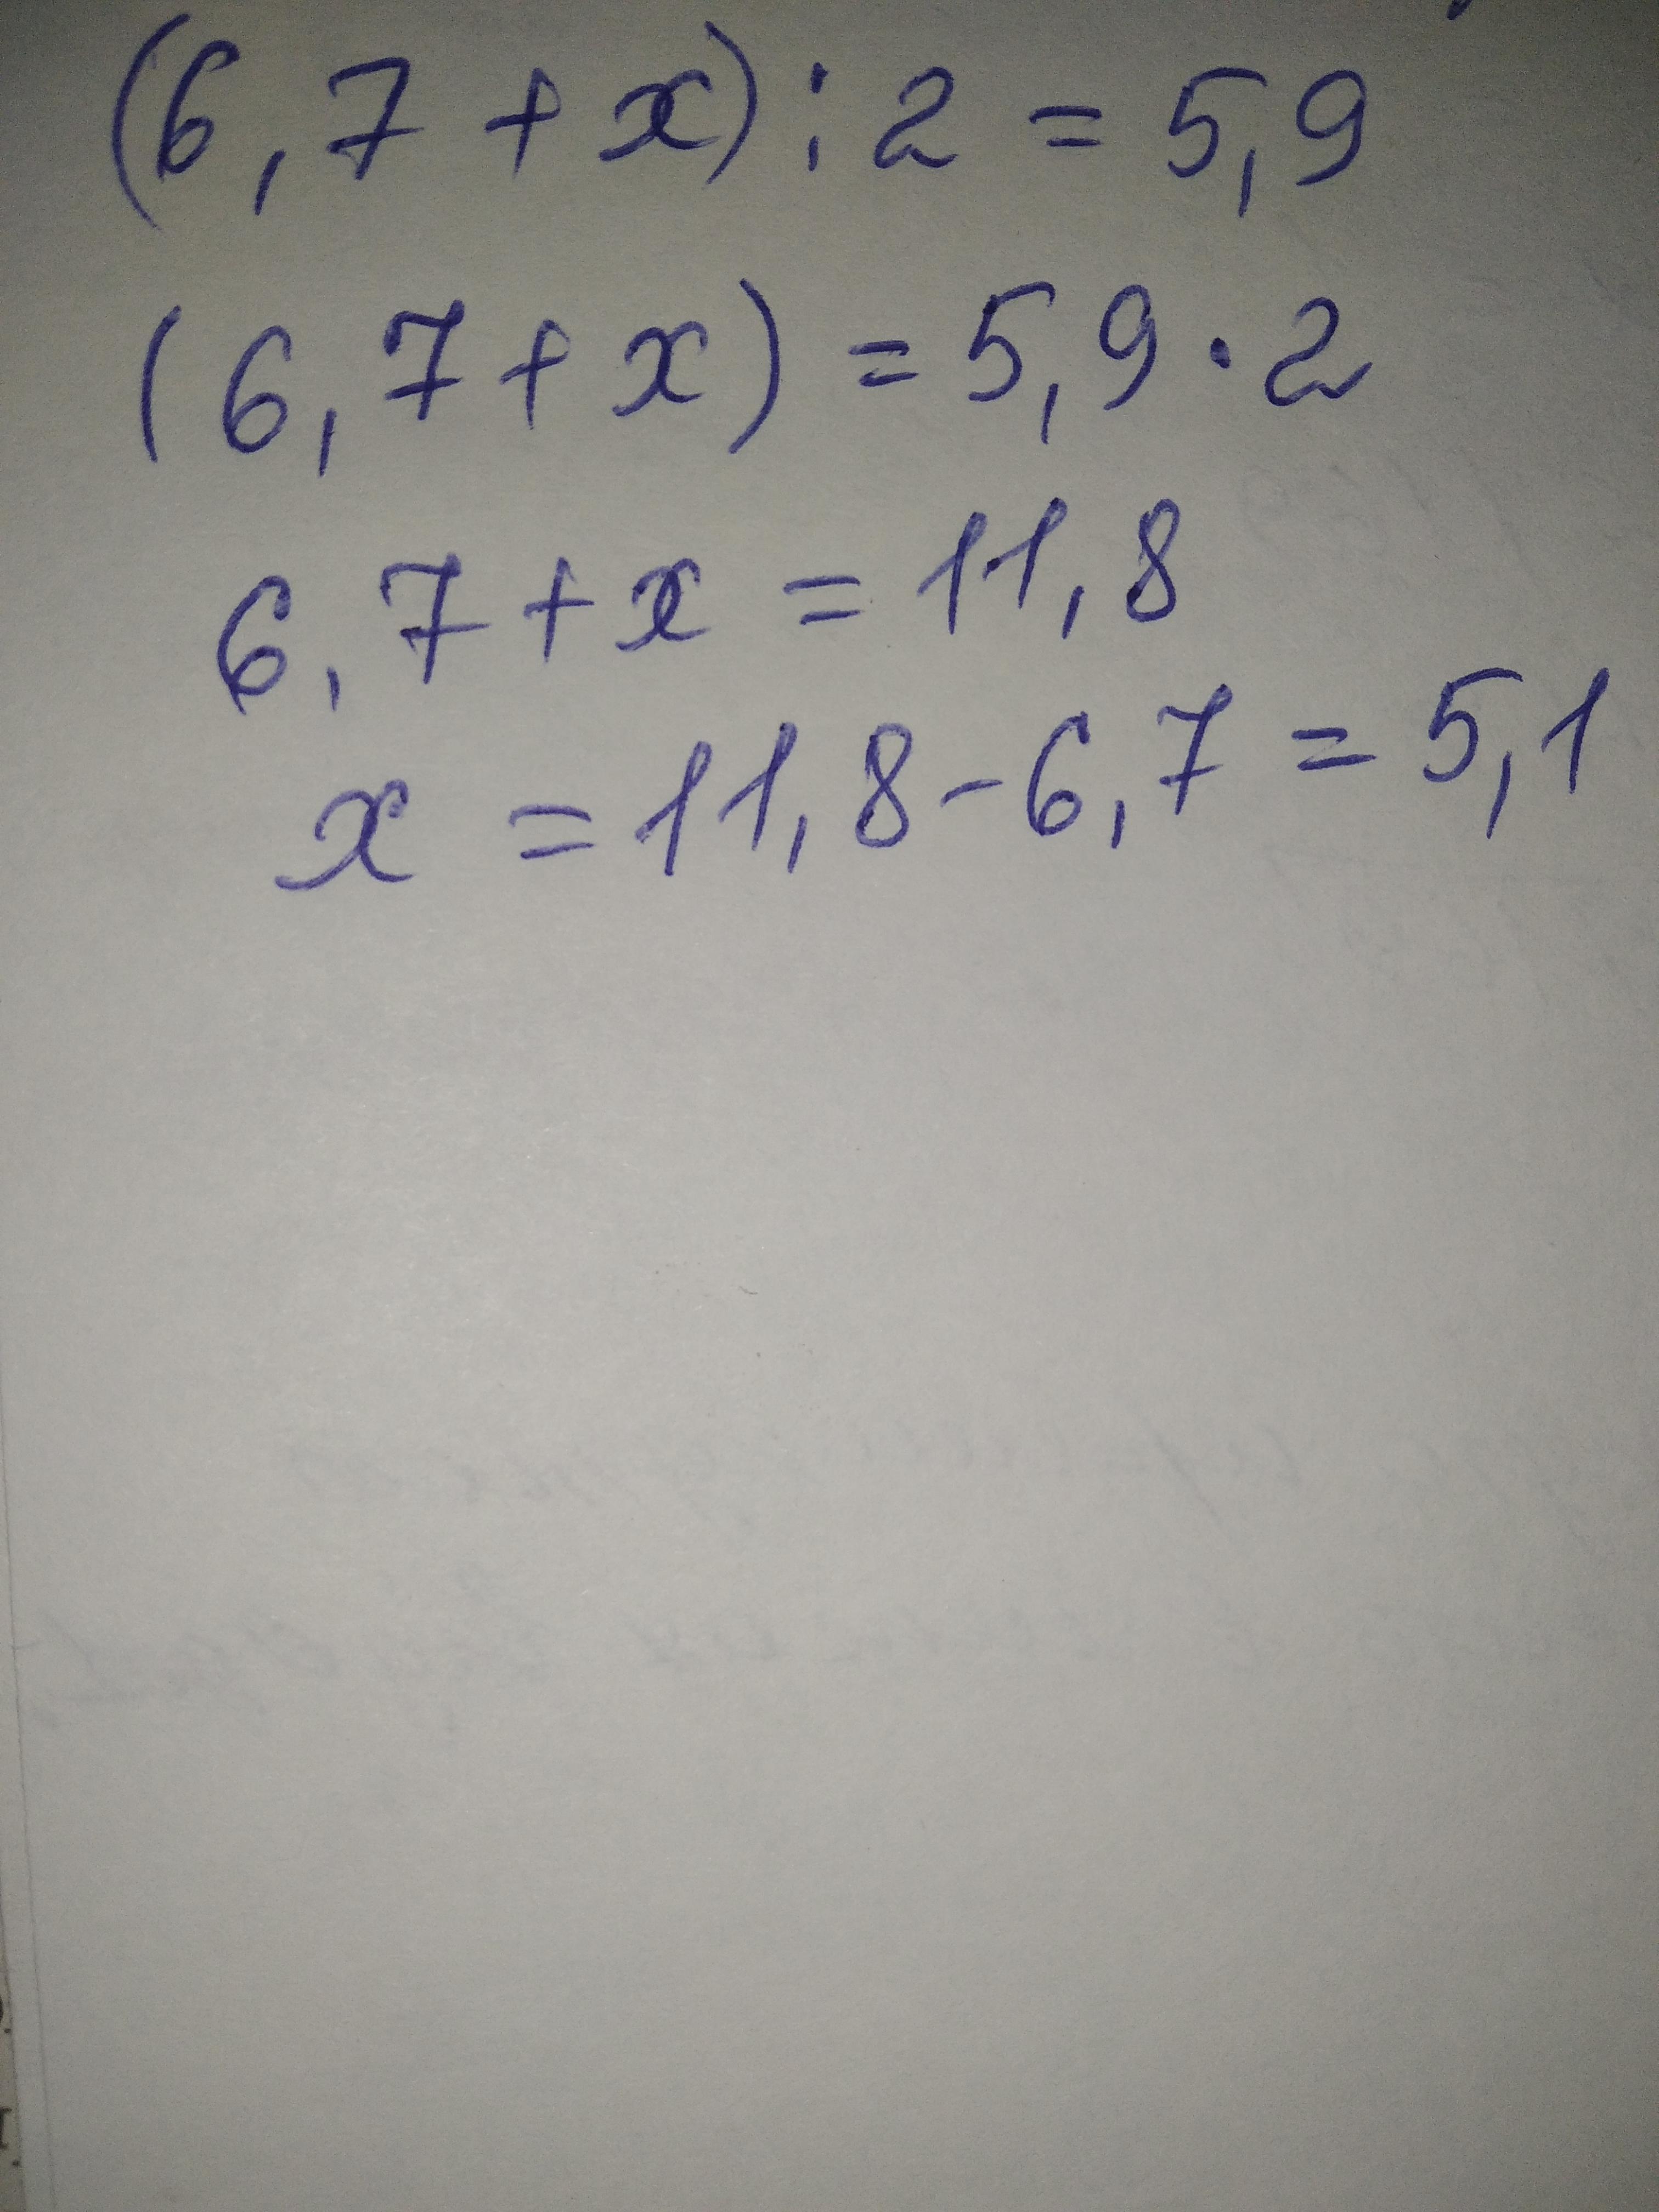 (6,7 + x) : 2 = 5,9
(6,7 + x) = 5,9 · 2
6,7 + x = 11,8
x = 11,8 - 6,7 = 5,1